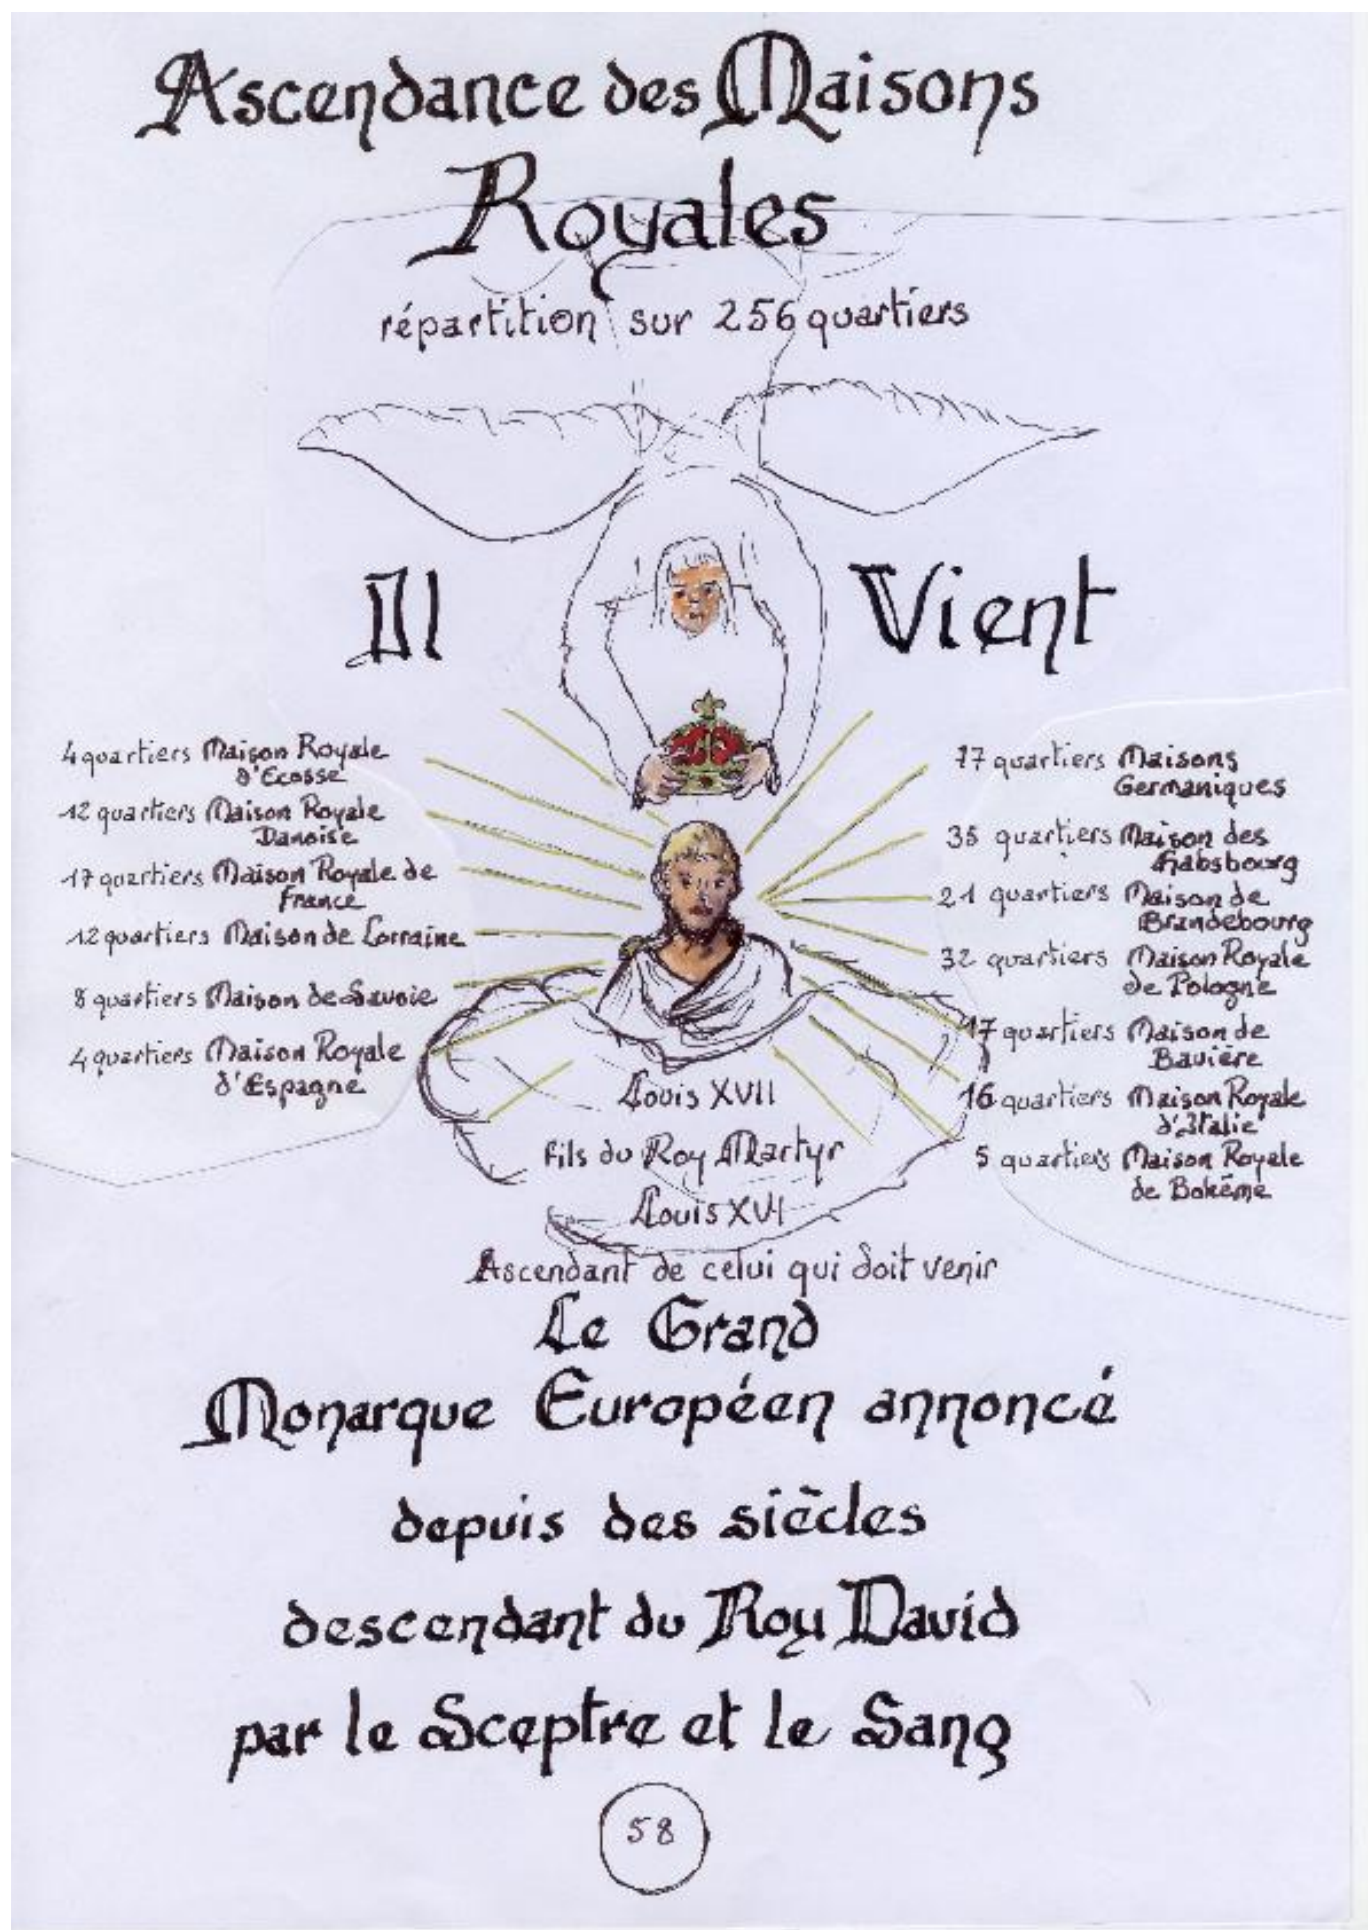 Ascendance des Maisons
Royales
répartition sur 256 quartiers
Il Vient
4 quartiers Maison Royale
d'Ecosse
12 quartiers Maison Royale
Danoise
17 quartiers Maison Royale de
France
12 quartiers Maison de Lorraine
8 quartiers Maison de Savoie
4 quartiers Maison Royale
d'Espagne
77 quartiers Maisons
Germaniques
35 quartiers Maison des
Habsbourg
21 quartiers Maison de
Brandebourg
32 quartiers Maison Royale
de Pologne
17 quartiers Maison de
Bavière
16 quartiers Maison Royale
d'Italie
5 quartiers Maison Royale
de Bohême
Louis XVII
fils du Roy Martyr
Louis XVI
Ascendant de celui qui doit venir
Le Grand
Monarque Européen annoncé
depuis des siècles
descendant du Roy David
par le Sceptre et le Sang
58